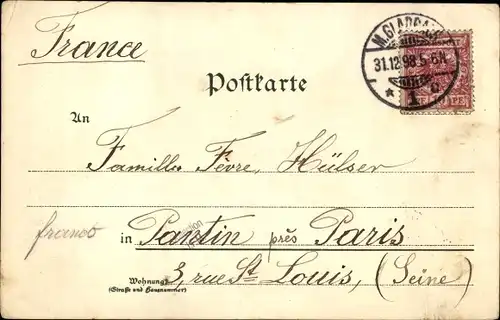 France
M. GLADBACH
31.12.98.5-6N.
* 1 c
Postkarte
An
Familles Fèvre, Hülser
franco
in Pantin près Paris
Wohnung
(Straße und Hausnummer)
3, rue St Louis, (Seine)